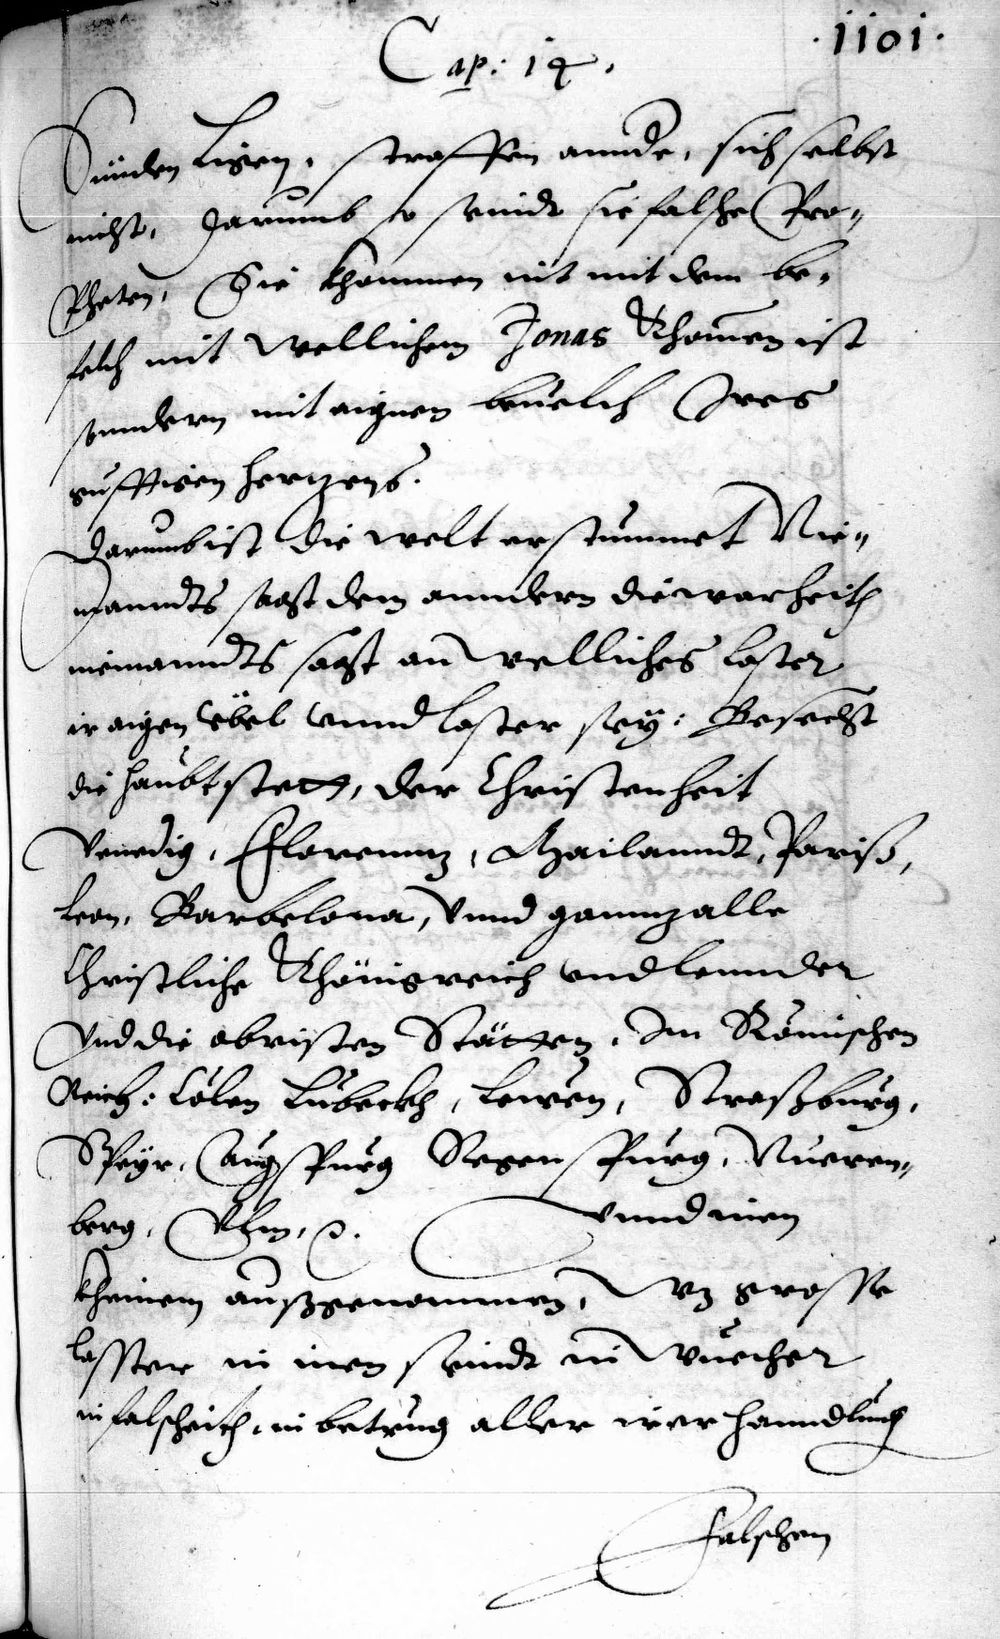 ·1101·
Cap: 14.
Sünden ligen, straffen annde, sich selbst
nicht, Darumb so seindt sie falsche Pro-
pheten, Sie khommen nit mit dem be-
felch mit wellichem Jonas Khomen ist
sonndern mit aignen beuelch Ires
gufftigen hertzens.
Darumb ist die welt erstummet Nie-
manndts sagt dem anndern die warheith
niemanndts sagt an welliches laster
ir aigen übel vnnd laster sey: Besecht
die haubtstett, der Christenheit
Venedig, Florenntz, Mailanndt, Pariß,
Leon, Barbelona, vnnd ganntz alle
Christliche Khönigreich vnd lennder
Vnd die obristen Stätten, Im Römischen
Reich: Cölen Lübeckh, Lewen, Straßburg,
Speyr, Augspurg Regenspurg, Nueren-
berg, Vlm, vnnd inen
kheinem außgenommen, wz grosse
lasster in inen seindt in wuecher
in falscheith, in betrug aller irer hanndlung
falschen